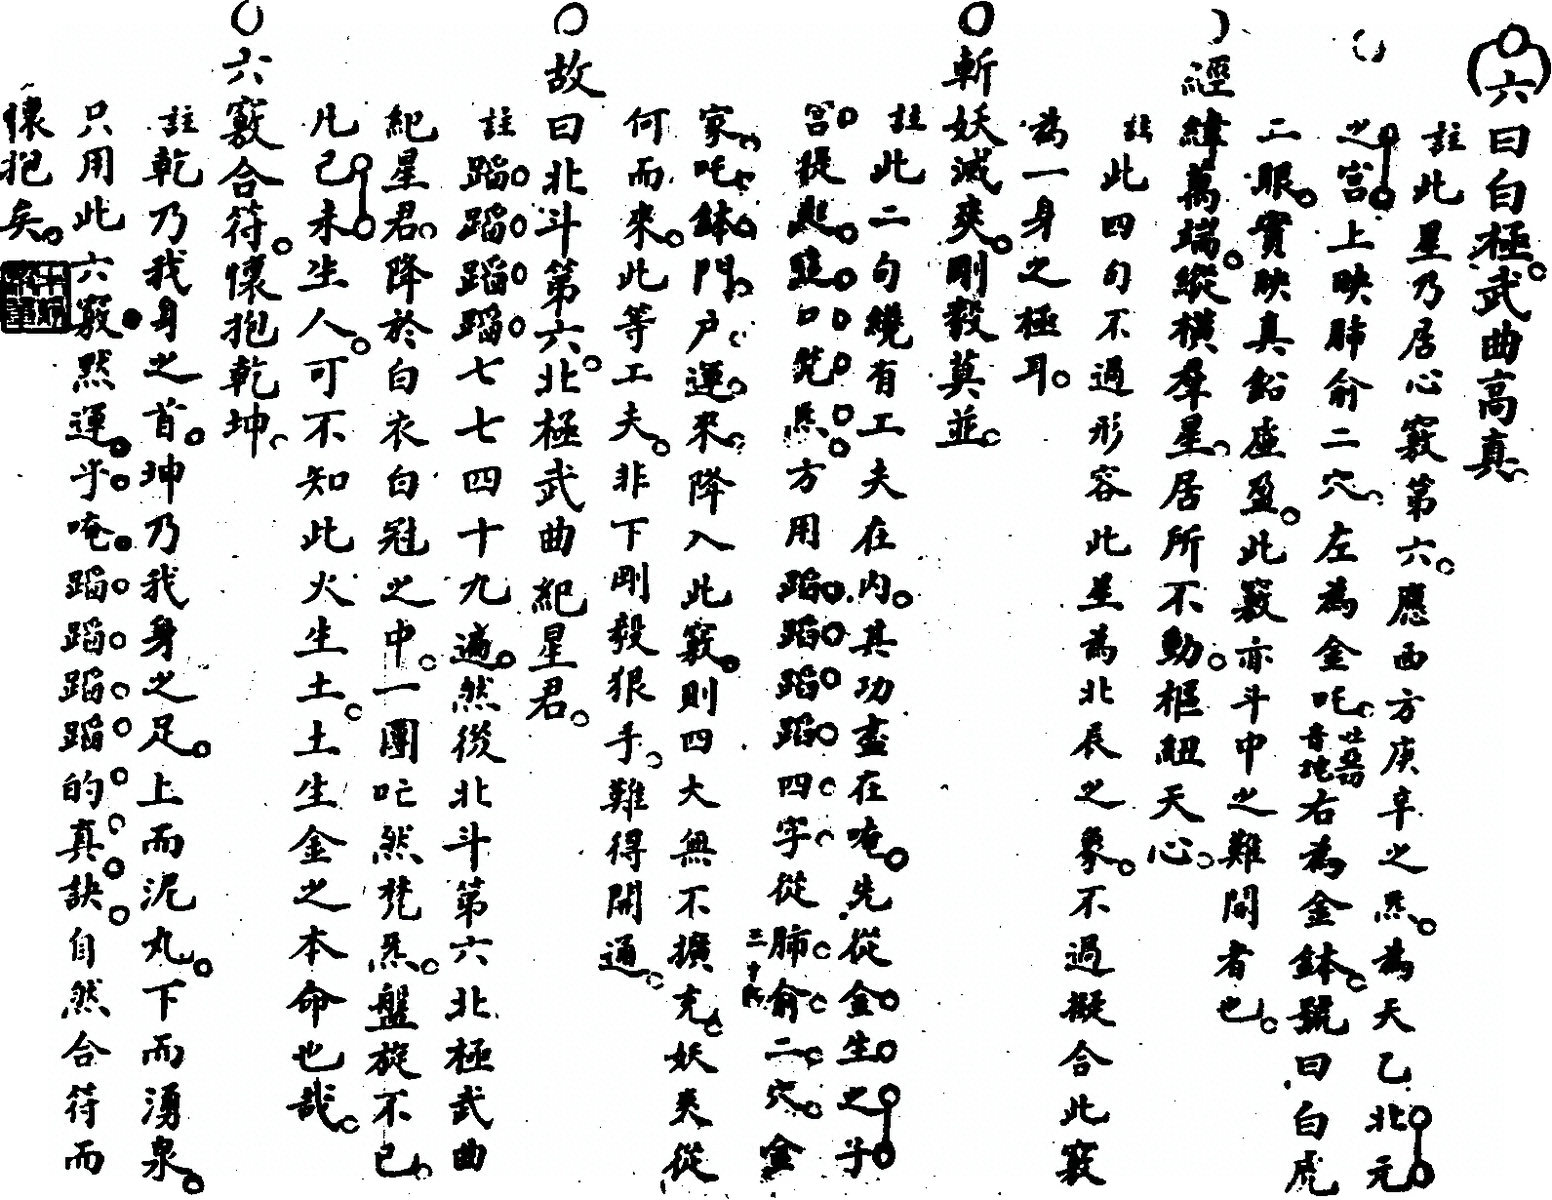 六曰白極武曲高真
註此星乃居心竅第六應西方庚辛之炁為天乙北元
之宮上映肺俞二穴左為金吒右為金鉢號曰白虎
二眼實映真鉛虛盈此竅亦斗中之難開者也
經緯萬端縱橫羣星居所不動樞紐天心
註此四句不過形容此星為北辰之象不過擬合此竅
為一身之極耳
斬妖滅爽剛毅莫並
註此二句纔有工夫在內其功盡在唵先從金生之子
宮提起 口 炁方用蹈蹈蹈蹈四字從肺俞二穴金
家吒鉢門户運來降入此竅則四大無不擴充妖爽從
何而來此等工夫非下剛毅狠手難得開通
故曰北斗第六北極武曲紀星君
註蹈蹈蹈蹈七七四十九遍然從北斗第六北極武曲
紀星君降於白衣白冠之中一團 然 炁盤旋不已
凡己未生人可不知此火生土土生金之本命也哉
六竅合符懷抱乾坤
註乾乃我身之首坤乃我身之足上而泥丸下而湧泉
只用此六竅默運乎唵蹈蹈蹈蹈的真訣自然合符而
懷抱矣